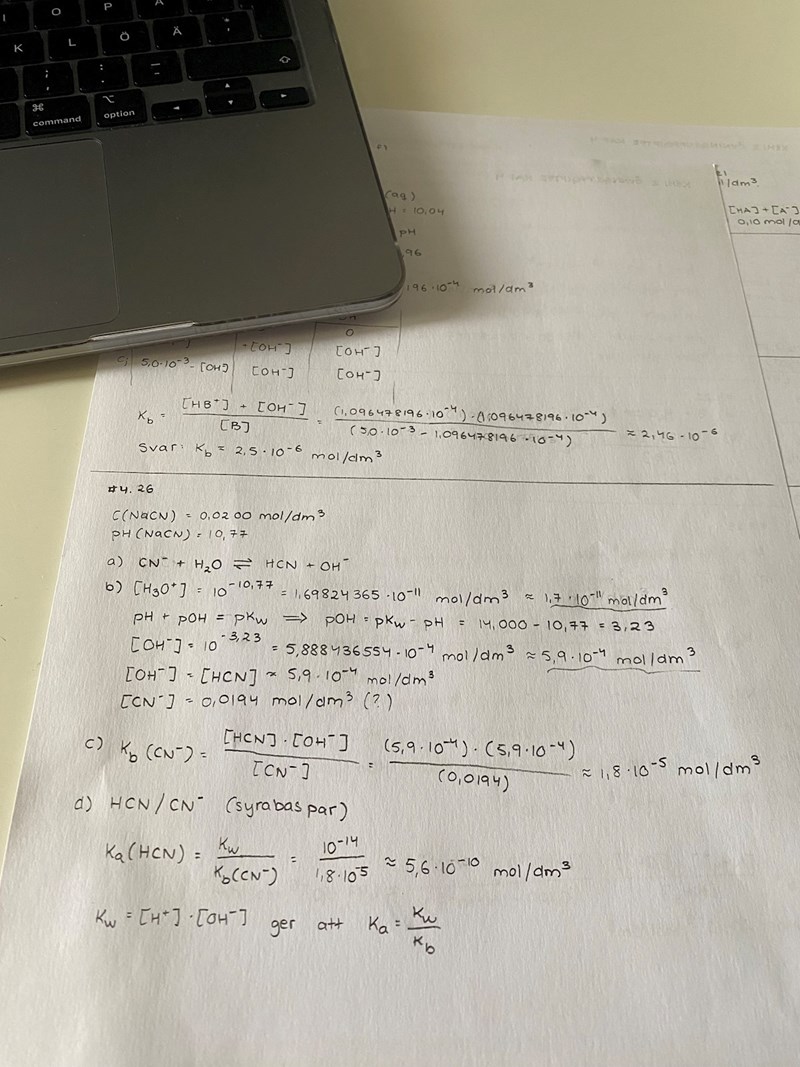 I O P Å
K L Ö Ä
command option
(aq)
H = 10,04
pH
96
196 · 10⁻⁴ mol/dm³
1/dm³
[HA] + [A⁻]
0,10 mol/d
0
- [OH⁻] [OH⁻]
5,0·10⁻³ - [OH] [OH⁻] [OH⁻]
K_b = [HB⁺] + [OH⁻] / [B] = (1,096478196·10⁻⁴)·(1,096478196·10⁻⁴) / (5,0·10⁻³ - 1,096478196·10⁻⁴) ≈ 2,46·10⁻⁶
Svar: K_b = 2,5·10⁻⁶ mol/dm³
#4.26
C(NaCN) = 0,0200 mol/dm³
pH(NaCN) = 10,77
a) CN⁻ + H₂O ⇌ HCN + OH⁻
b) [H₃O⁺] = 10⁻¹⁰,⁷⁷ = 1,69824365·10⁻¹¹ mol/dm³ ≈ 1,7·10⁻¹¹ mol/dm³
pH + pOH = pK_w ⟹ pOH = pK_w - pH = 14,000 - 10,77 = 3,23
[OH⁻] = 10⁻³,²³ = 5,888436554·10⁻⁴ mol/dm³ ≈ 5,9·10⁻⁴ mol/dm³
[OH⁻] = [HCN] ≈ 5,9·10⁻⁴ mol/dm³
[CN⁻] = 0,0194 mol/dm³ (?)
c) K_b (CN⁻) = [HCN]·[OH⁻] / [CN⁻] = (5,9·10⁻⁴)·(5,9·10⁻⁴) / (0,0194) ≈ 1,8·10⁻⁵ mol/dm³
d) HCN/CN⁻ (syrabaspar)
K_a(HCN) = K_w / K_b(CN⁻) = 10⁻¹⁴ / 1,8·10⁻⁵ ≈ 5,6·10⁻¹⁰ mol/dm³
K_w = [H⁺]·[OH⁻] ger att K_a = K_w / K_b